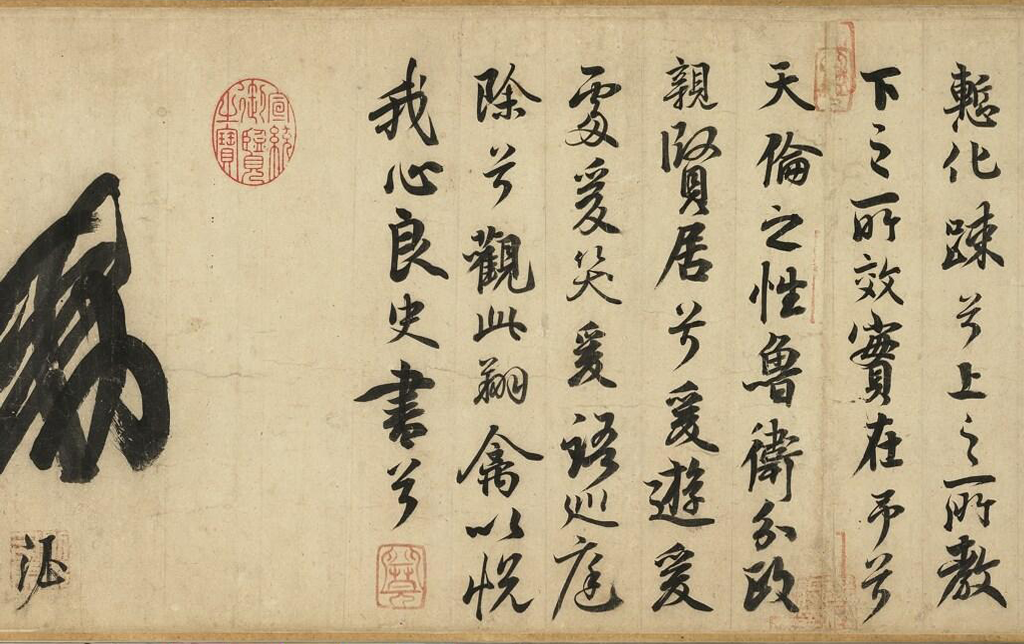 慙化踈兮上之所教
下之所效實在予兮
天倫之性魯衛分政
親賢居兮爰遊爰
處爰笑爰語巡庭
除兮觀此翔禽以悅
我心良史書兮
宣統
御覽
之寶